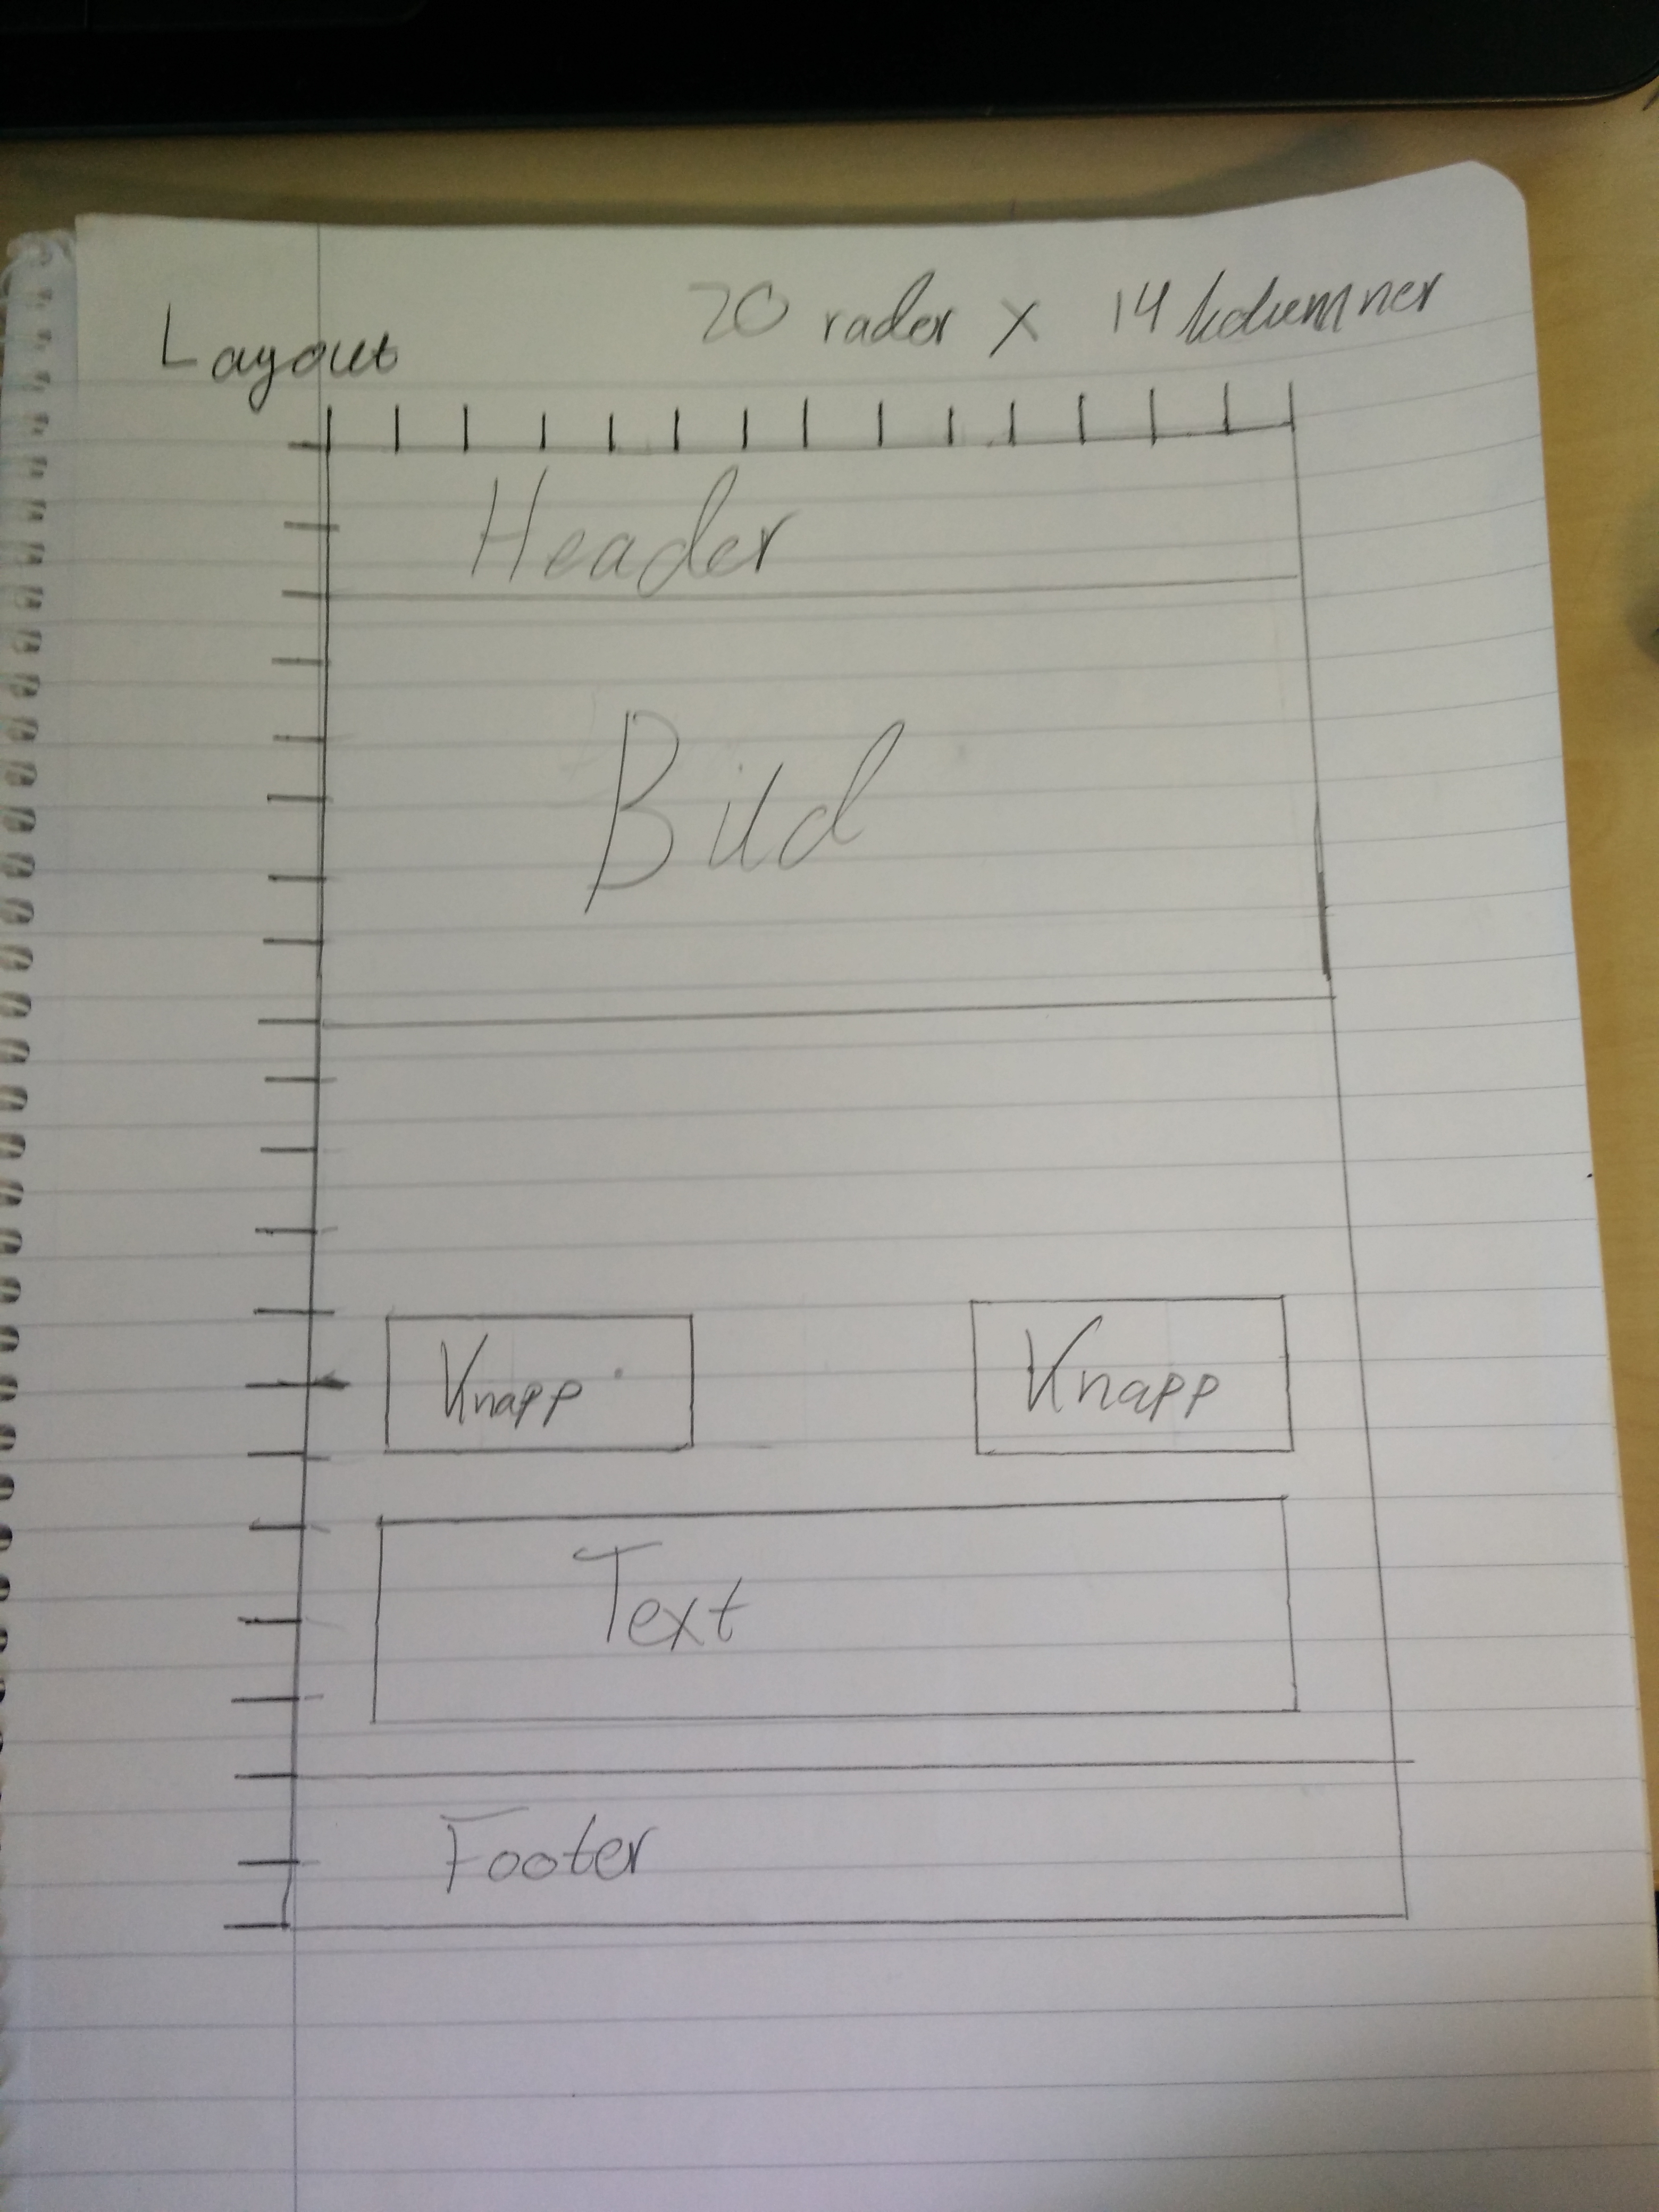 Layout
20 rader x 14 kolumner
Header
Bild
Knapp
Knapp
Text
Footer